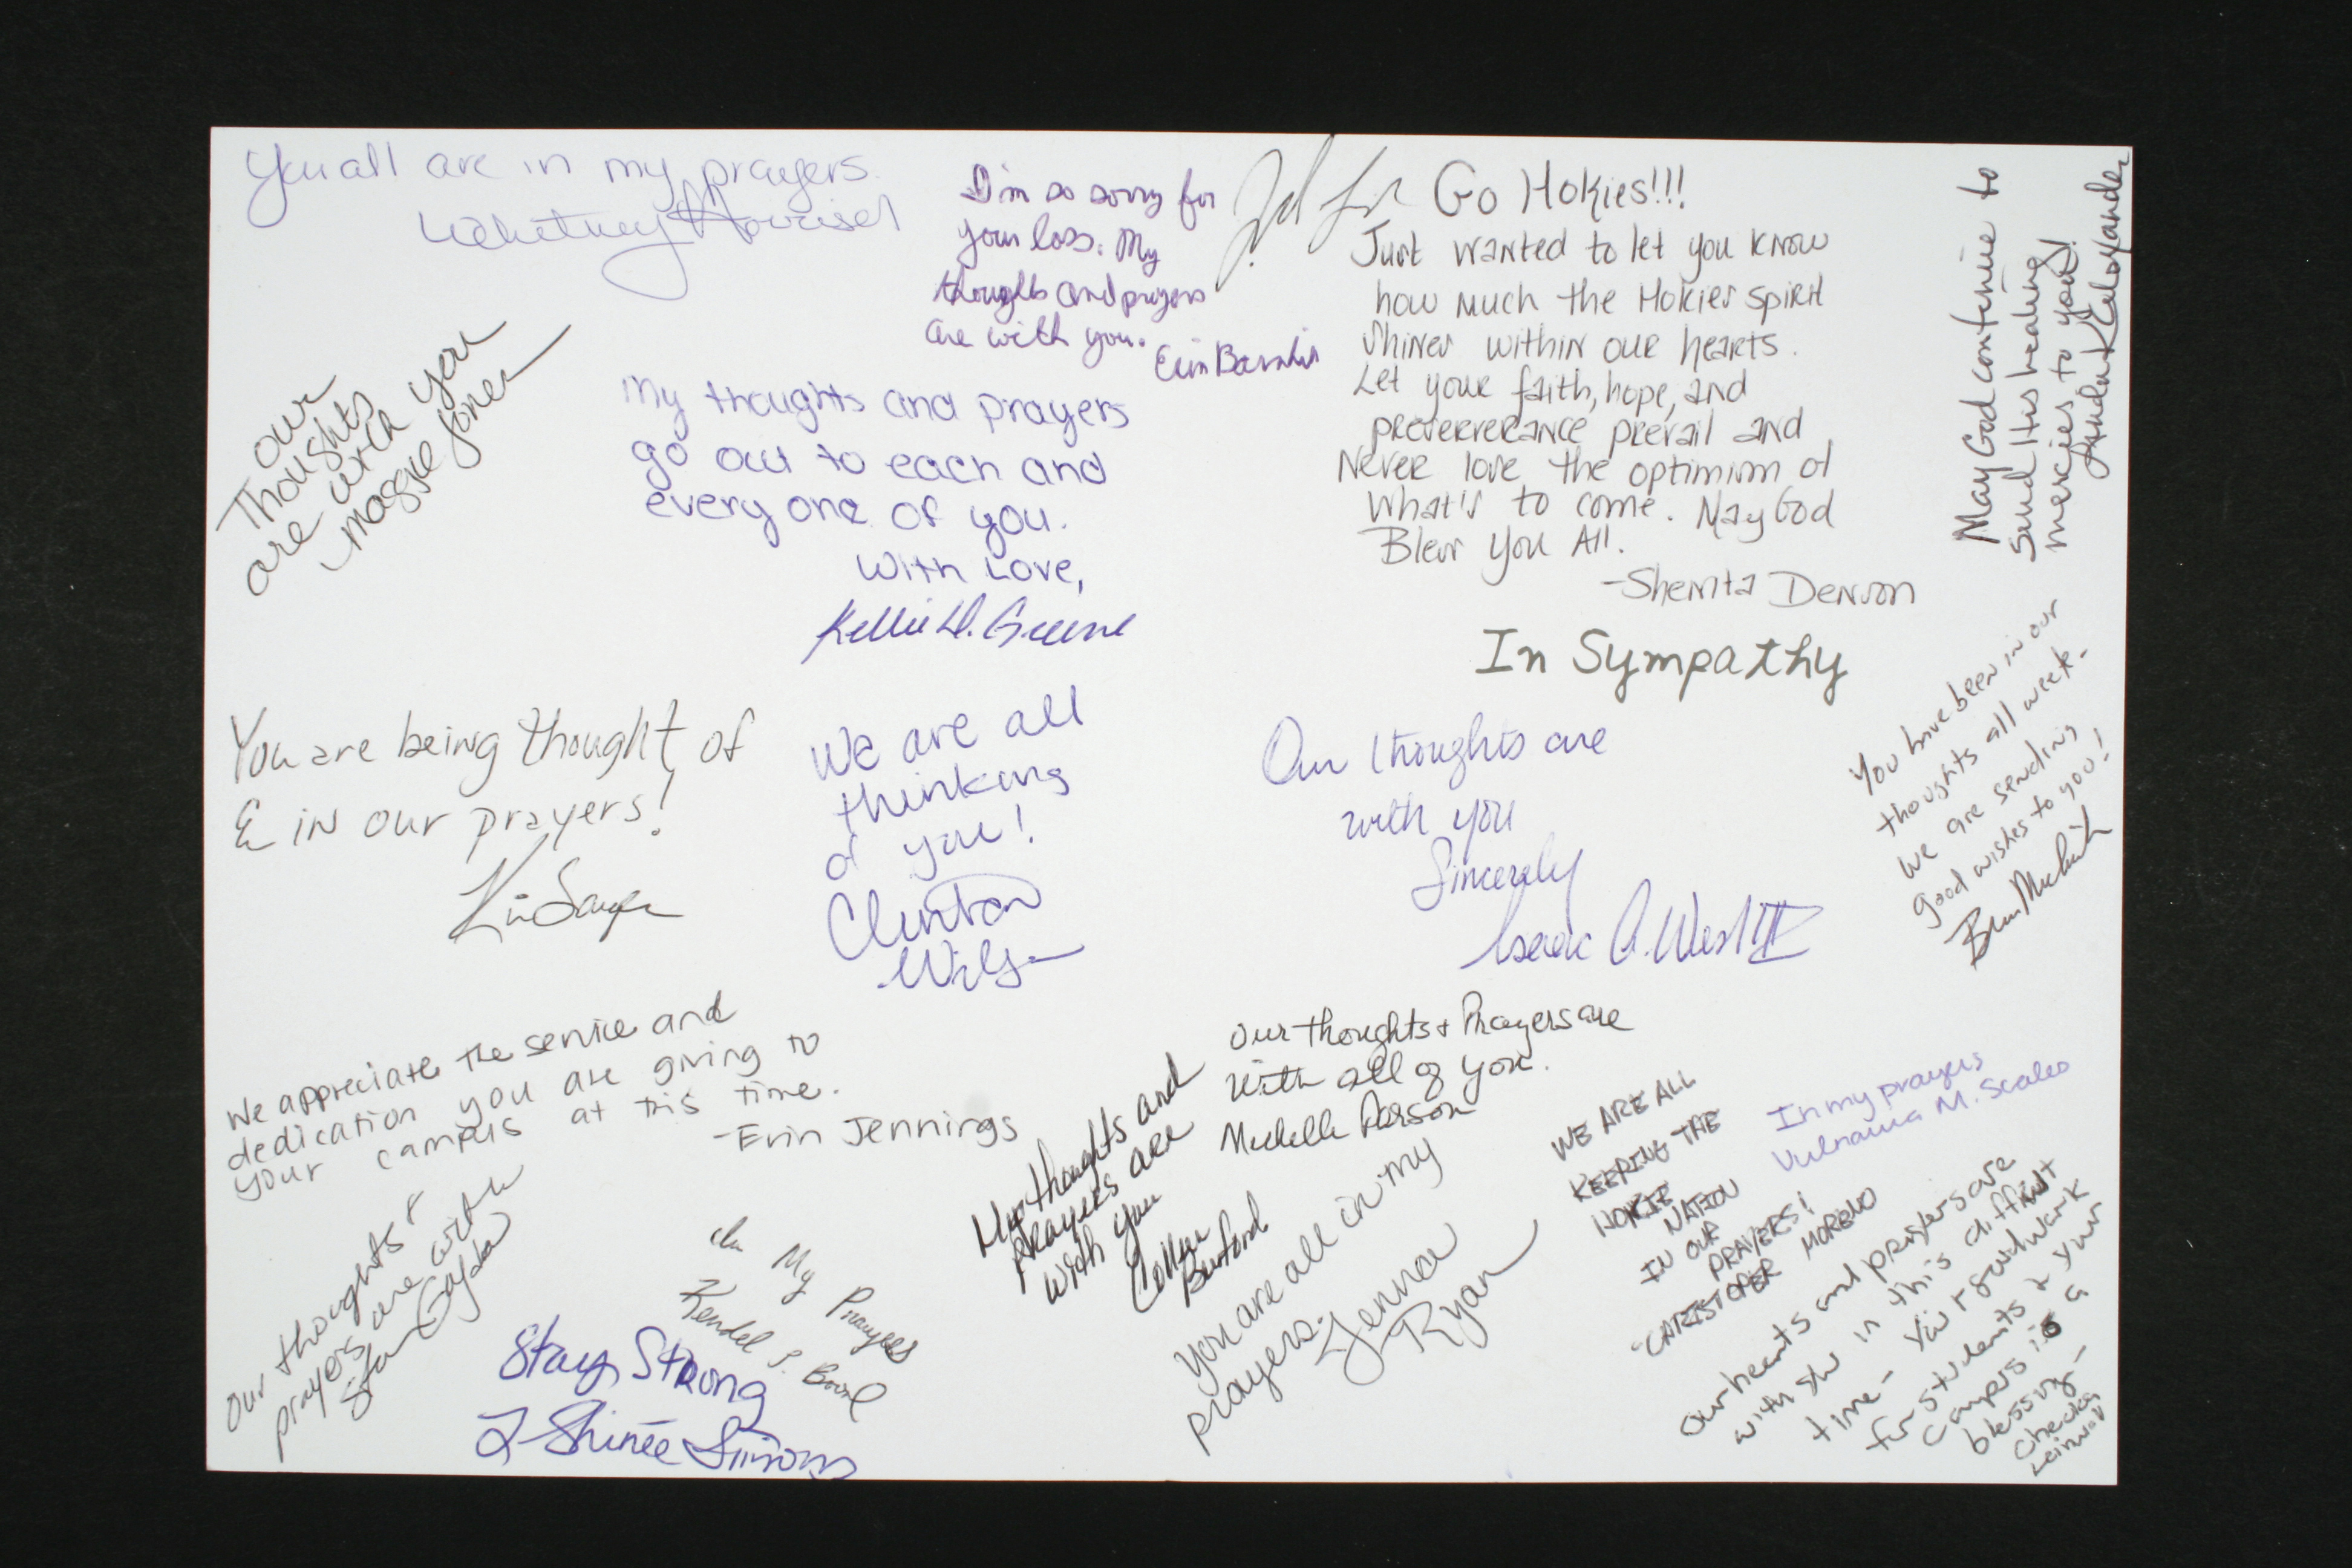 You all are in my prayers.
Whitney Harrison
I'm so sorry for
your loss. My
thoughts and prayers
are with you.
Erin
Go Hokies!!!
Just wanted to let you know
how much the Hokies spirit
shines within our hearts.
Let your faith, hope, and
perserverance prevail and
Never lose the optimism of
What's to come. May God
Bless You All.
-Shenita Denson
In Sympathy
May God continue to
send His healing
mercies to you!
Our
Thoughts
are with you
Maggie Jones
My thoughts and prayers
go out to each and
every one of you.
With Love,
Kellie D. Greene
You are being thought of
& in our prayers!
We are all
thinking
of you!
Clinton
Wilson
Our thoughts are
with you
Sincerely
Isaac A. West III
You have been in our
thoughts all week-
We are sending
good wishes to you!
We appreciate the service and
dedication you are giving to
your campus at this time.
-Erin Jennings
Our thoughts &
prayers are with
Stan
In My Prayers
Kendel S.
Stay Strong
Simons
My thoughts and
prayers are
with you
Colleen
Buford
Our thoughts + Prayers are
with all of you.
Michelle Parson
You are all in my
prayers.
Jenna
Ryan
WE ARE ALL
KEEPING THE
HOKIE
NATION
IN OUR
PRAYERS!
-CHRISTOPER MORENO
In my prayers
M. Scales
Our hearts and prayers are
with you in this difficult
time- Your good work
for students & your
campus is a
blessing-